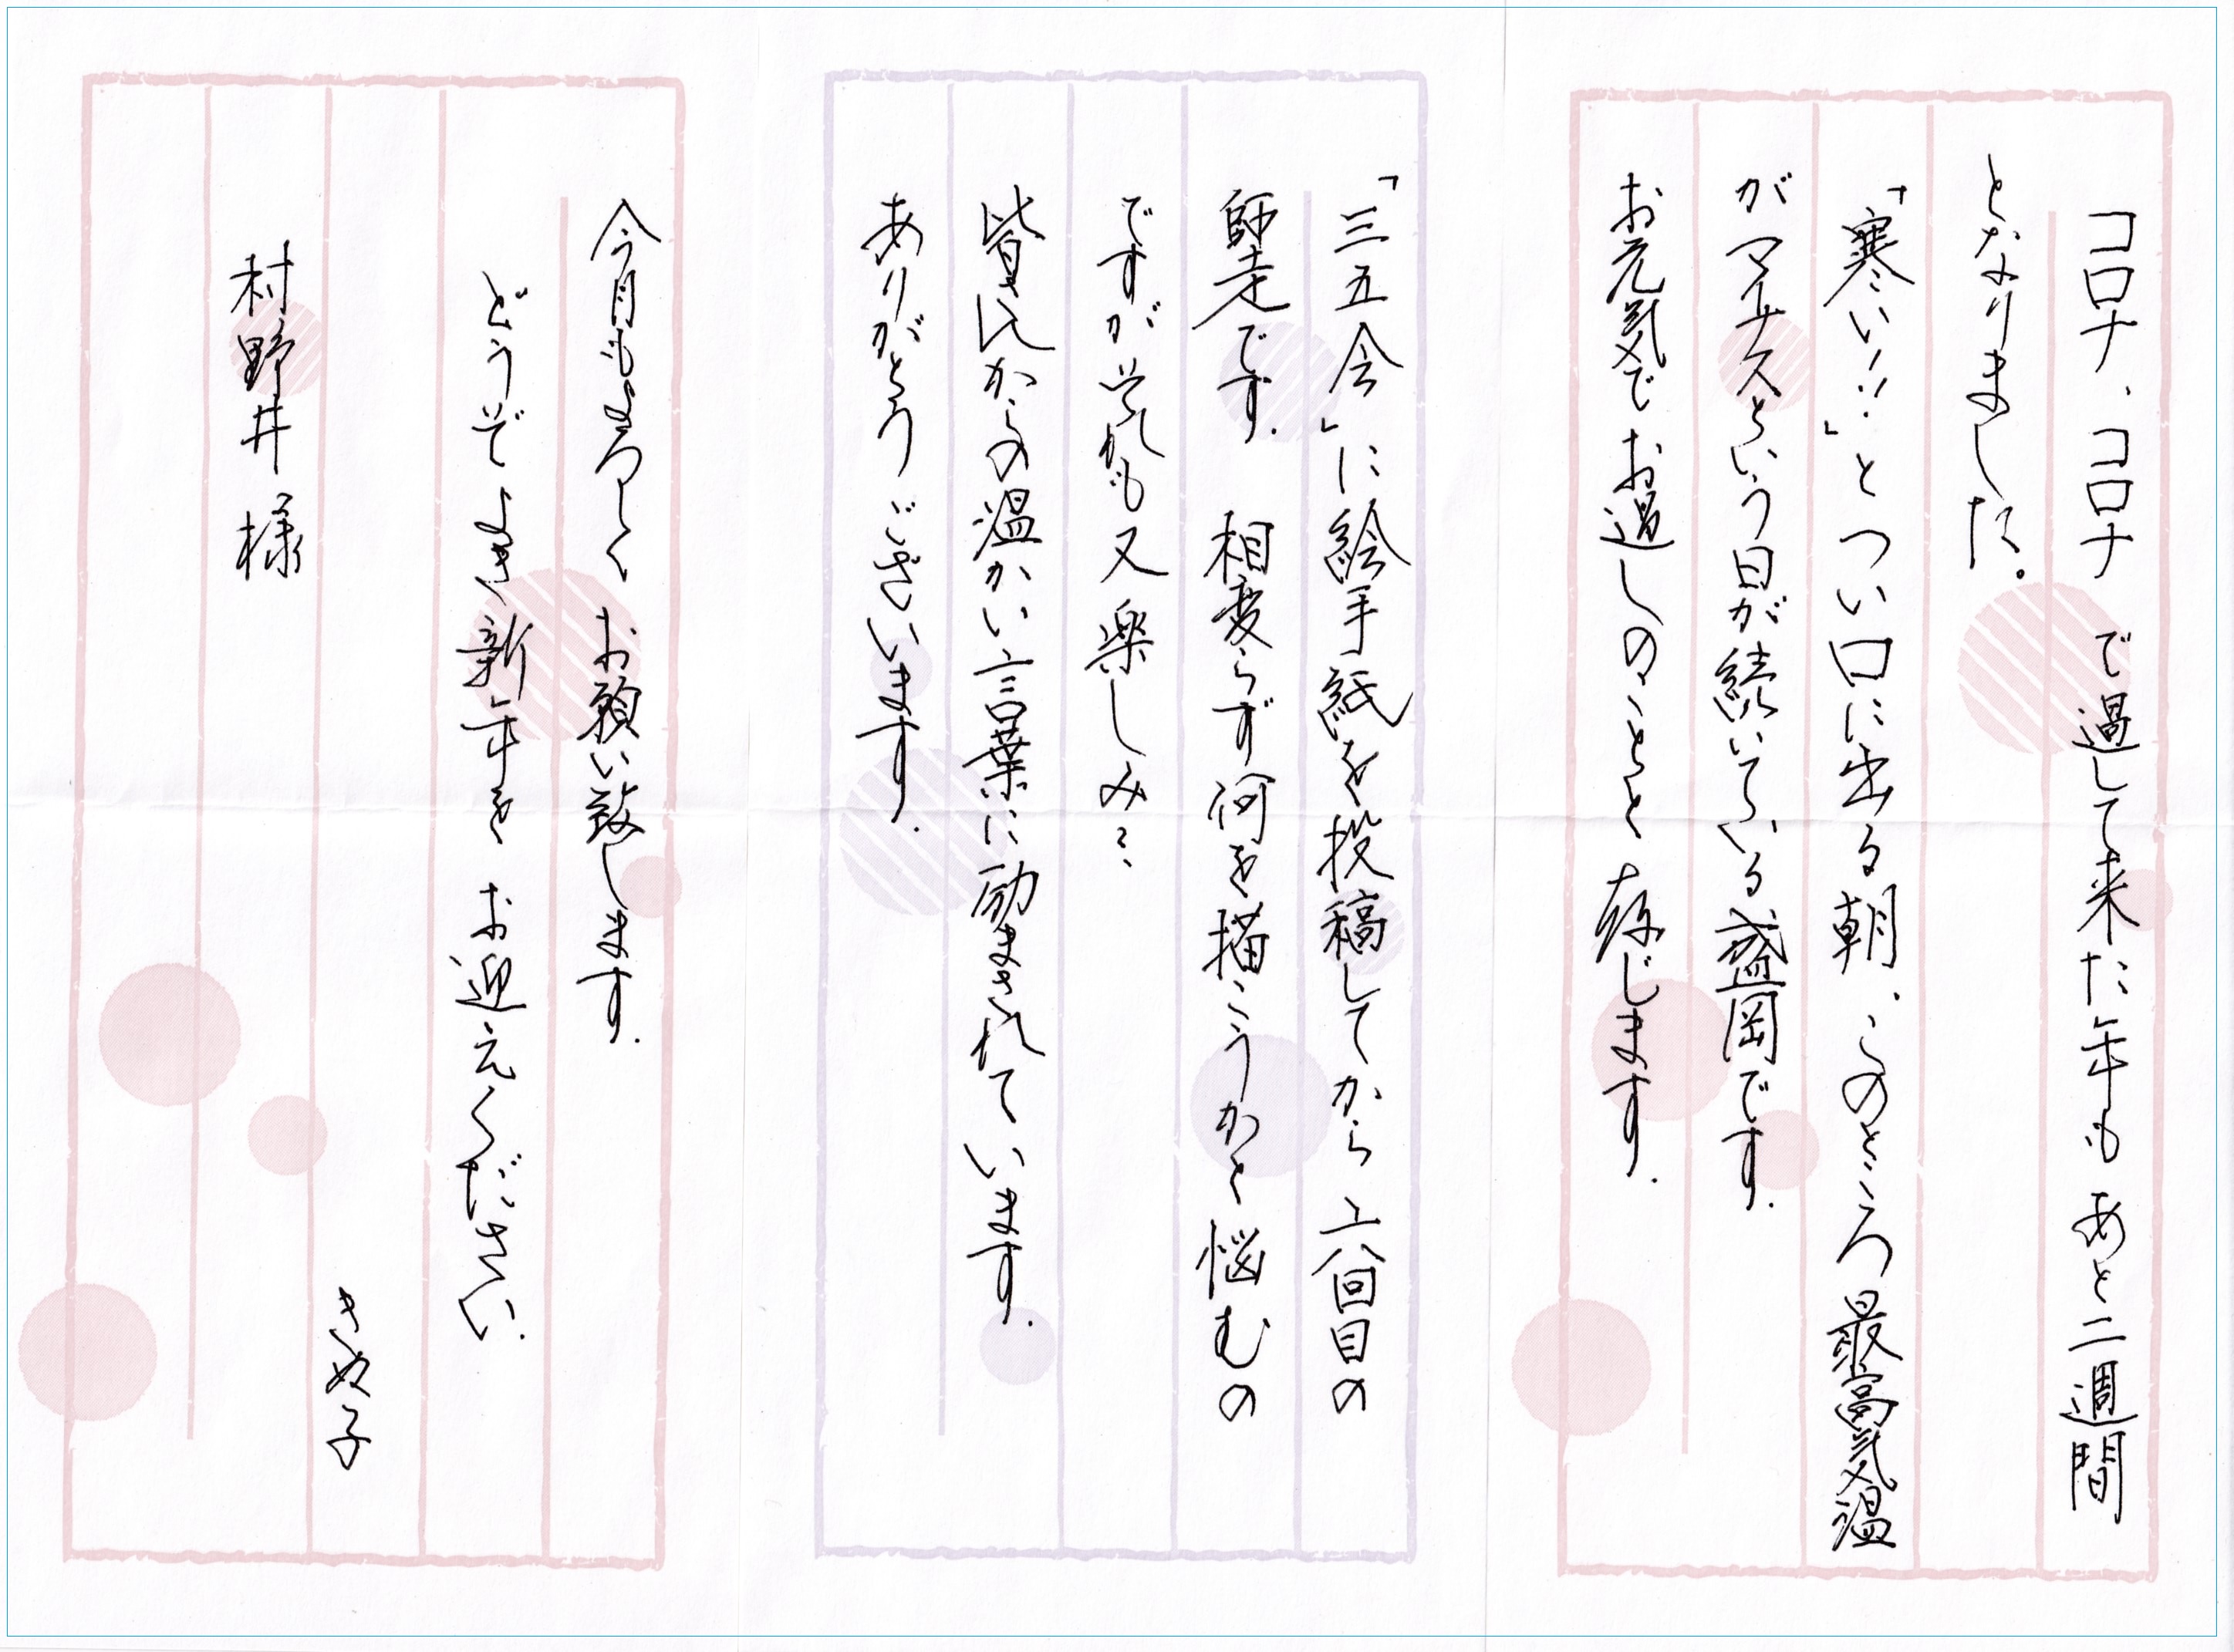 コロナ、コロナ で過して来た年も あと二週間
となりました。
「寒い!!」とつい口に出る朝、このところ最高気温
がマイナスという日が続いている盛岡です。
お元気でお過しのことと存じます。
「三五会」に絵手紙を投稿してから 六回目の
師走です。 相変らず何を描こうかと悩むの
ですが それも又楽しみ…
皆んなからの温かい言葉に励まされています。
ありがとうございます。
今月もよろしく お願い致します。
どうぞよき新年を お迎えください。
きぬ子
村野井様